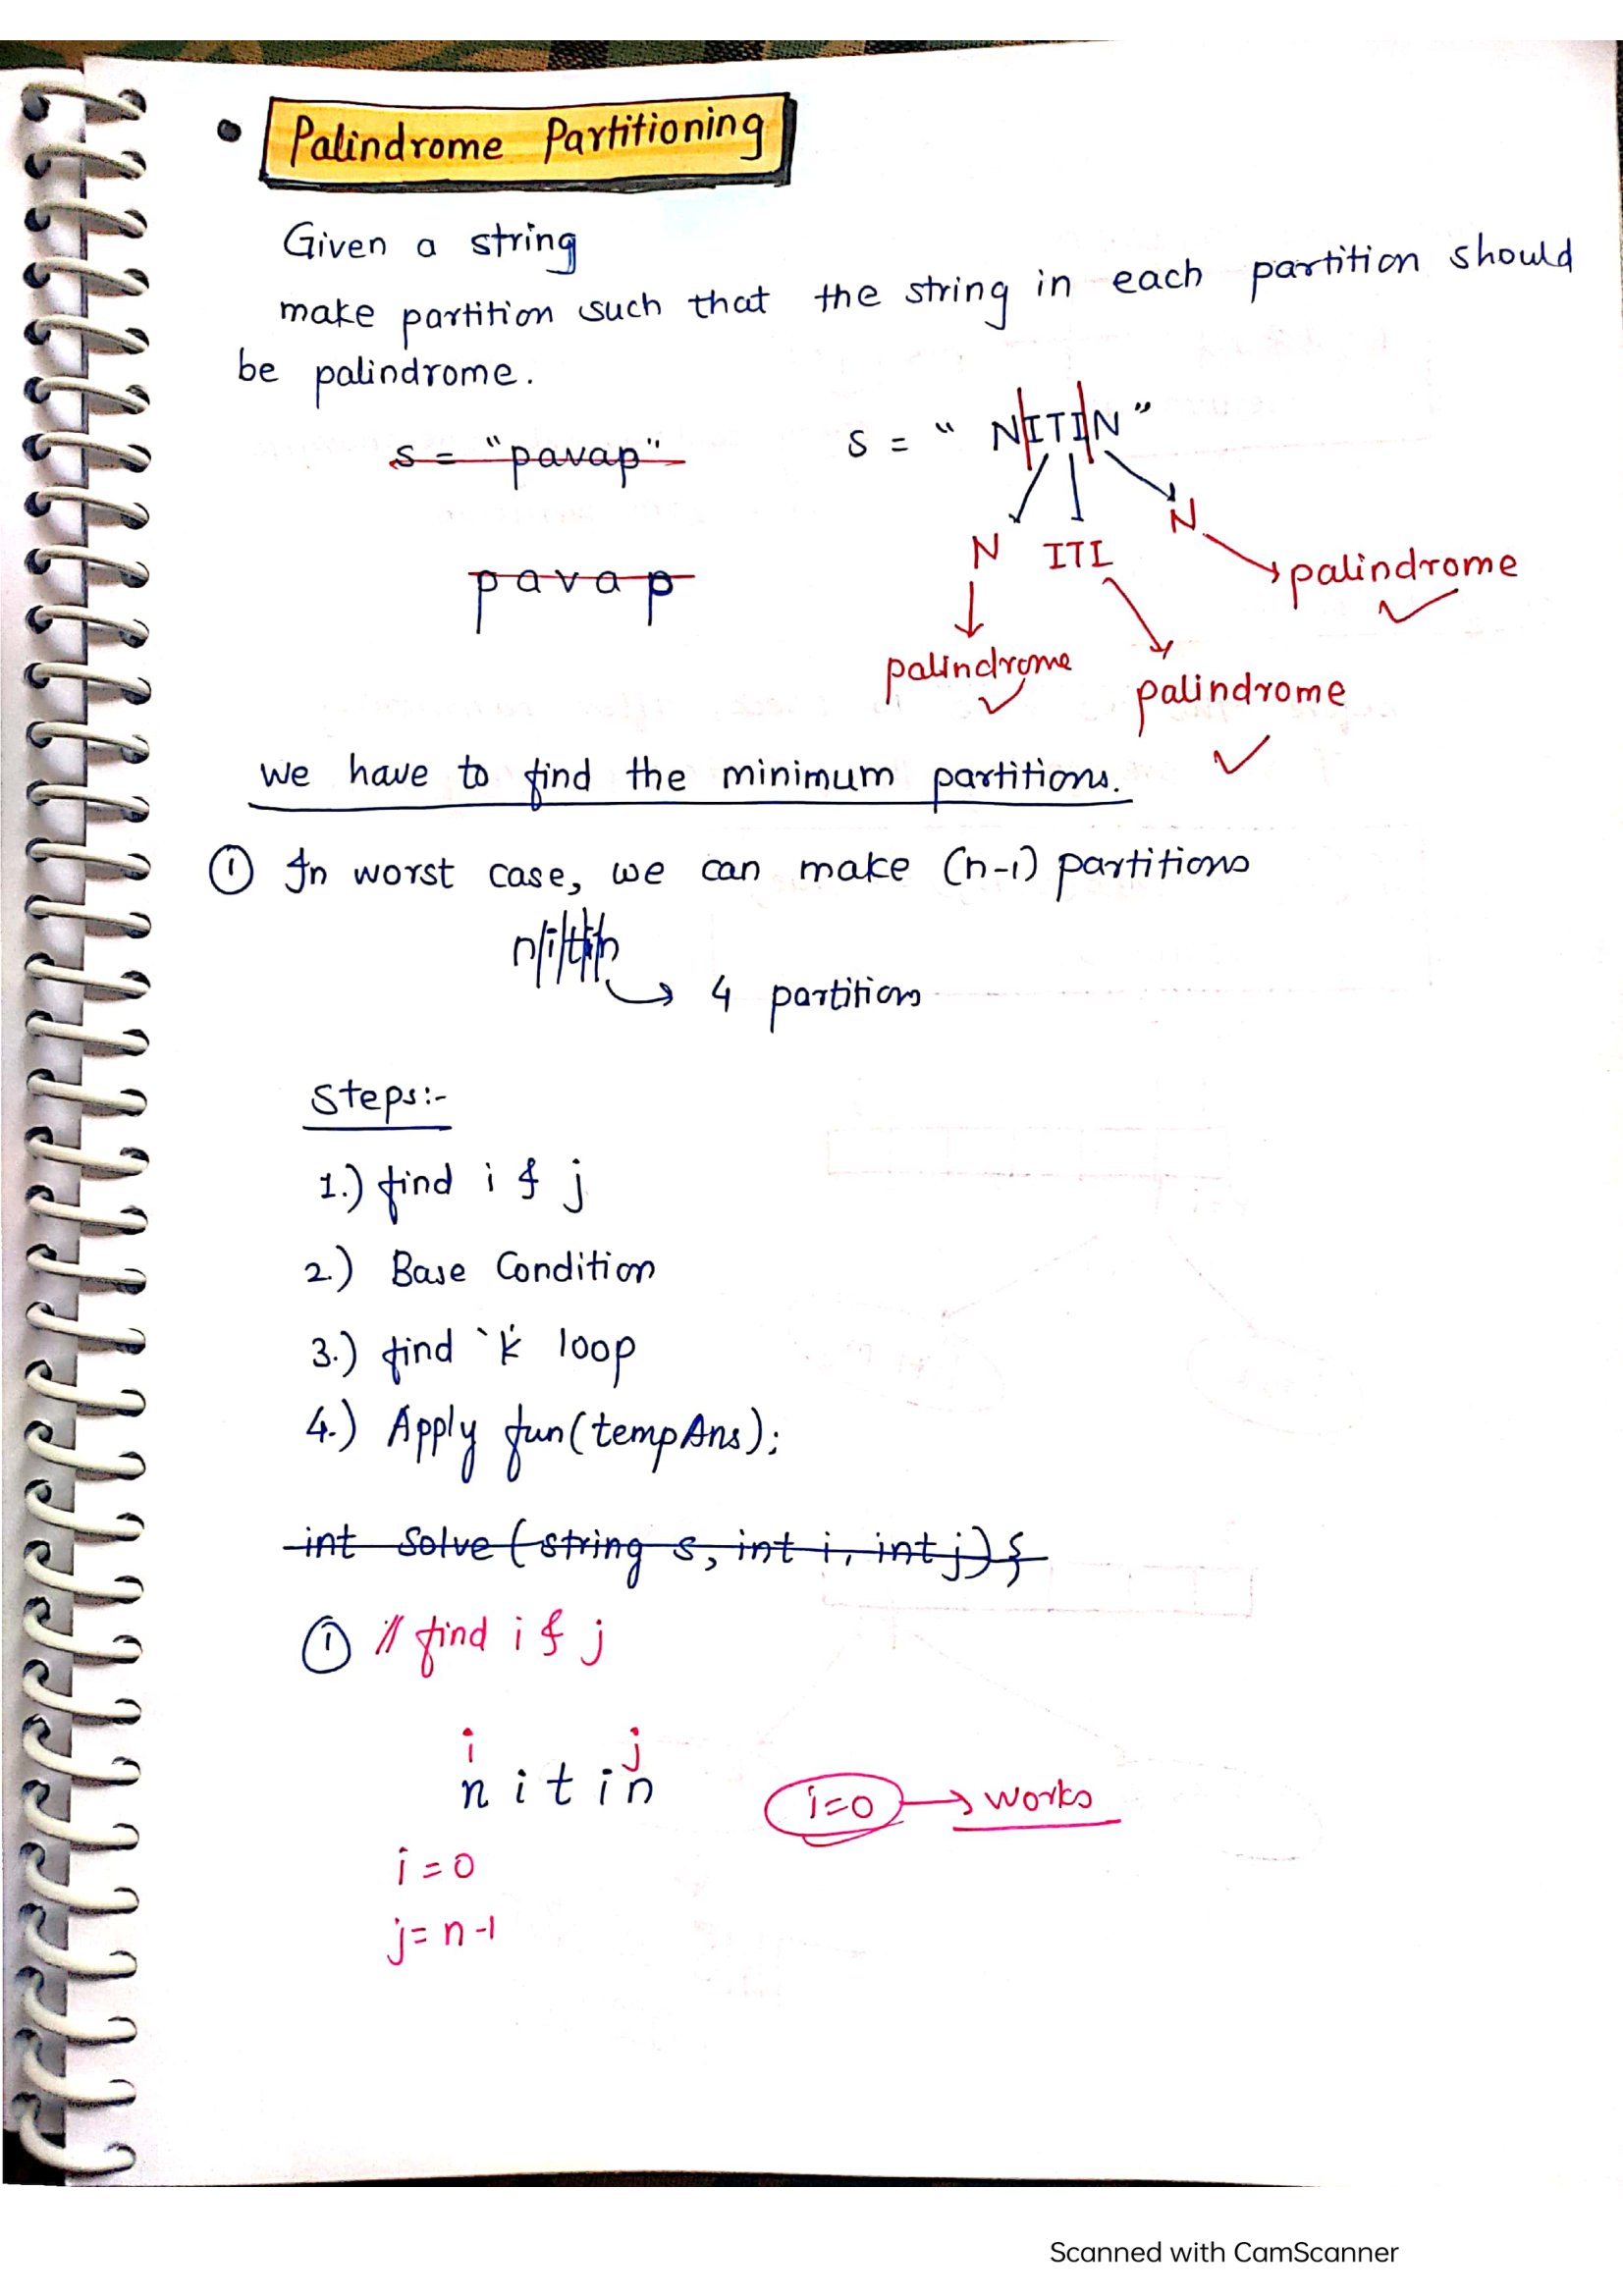 • Palindrome Partitioning
Given a string
make partition such that the string in each partition should
be palindrome.
s = "pavap"
s = " NITIN "
p a v a p
N ITI N
palindrome
palindrome
palindrome
we have to find the minimum partitions.
① In worst case, we can make (n-1) partitions
n/i/t/i/n
4 partitions
Steps:-
1.) find i & j
2.) Base Condition
3.) find 'k' loop
4.) Apply fun(tempAns);
int solve (string s, int i, int j) {
① // find i & j
i j
n i t i n
i=0 → works
i = 0
j = n-1
Scanned with CamScanner